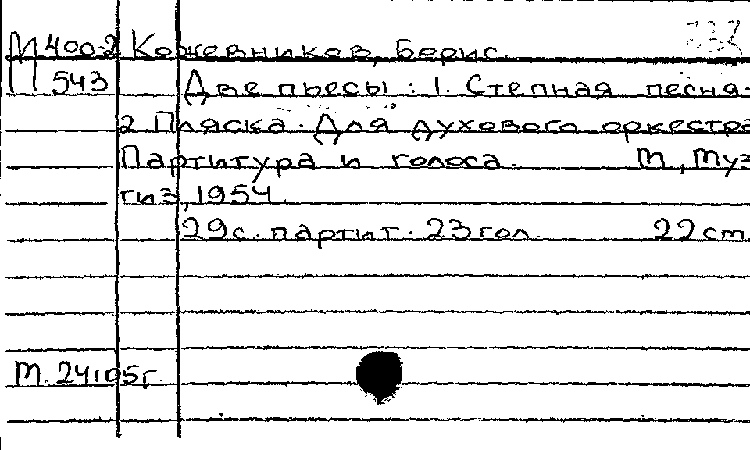 М 400-2 Кожевников, Борис.
543 Две пьесы: 1. Степная песня-
2 Пляска. Для духового оркестра
Партитура и голоса. М., Муз
гиз, 1954.
29с. партит. 23 гол. 22 cm.
М. 24105г